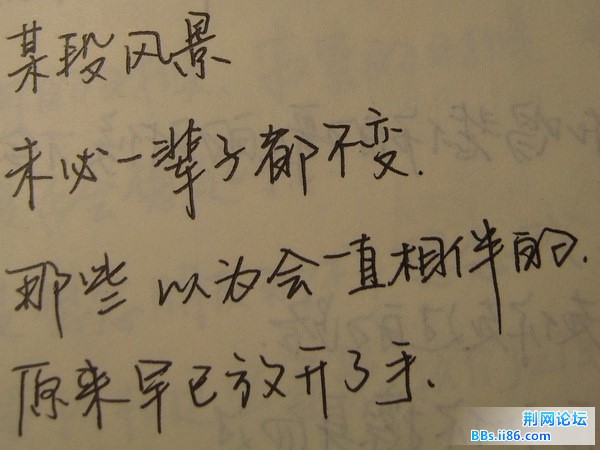 某段风景
未必一辈子都不变.
那些以为会一直相伴的.
原来早已放开了手.
荆网论坛
BBs.ii86.com